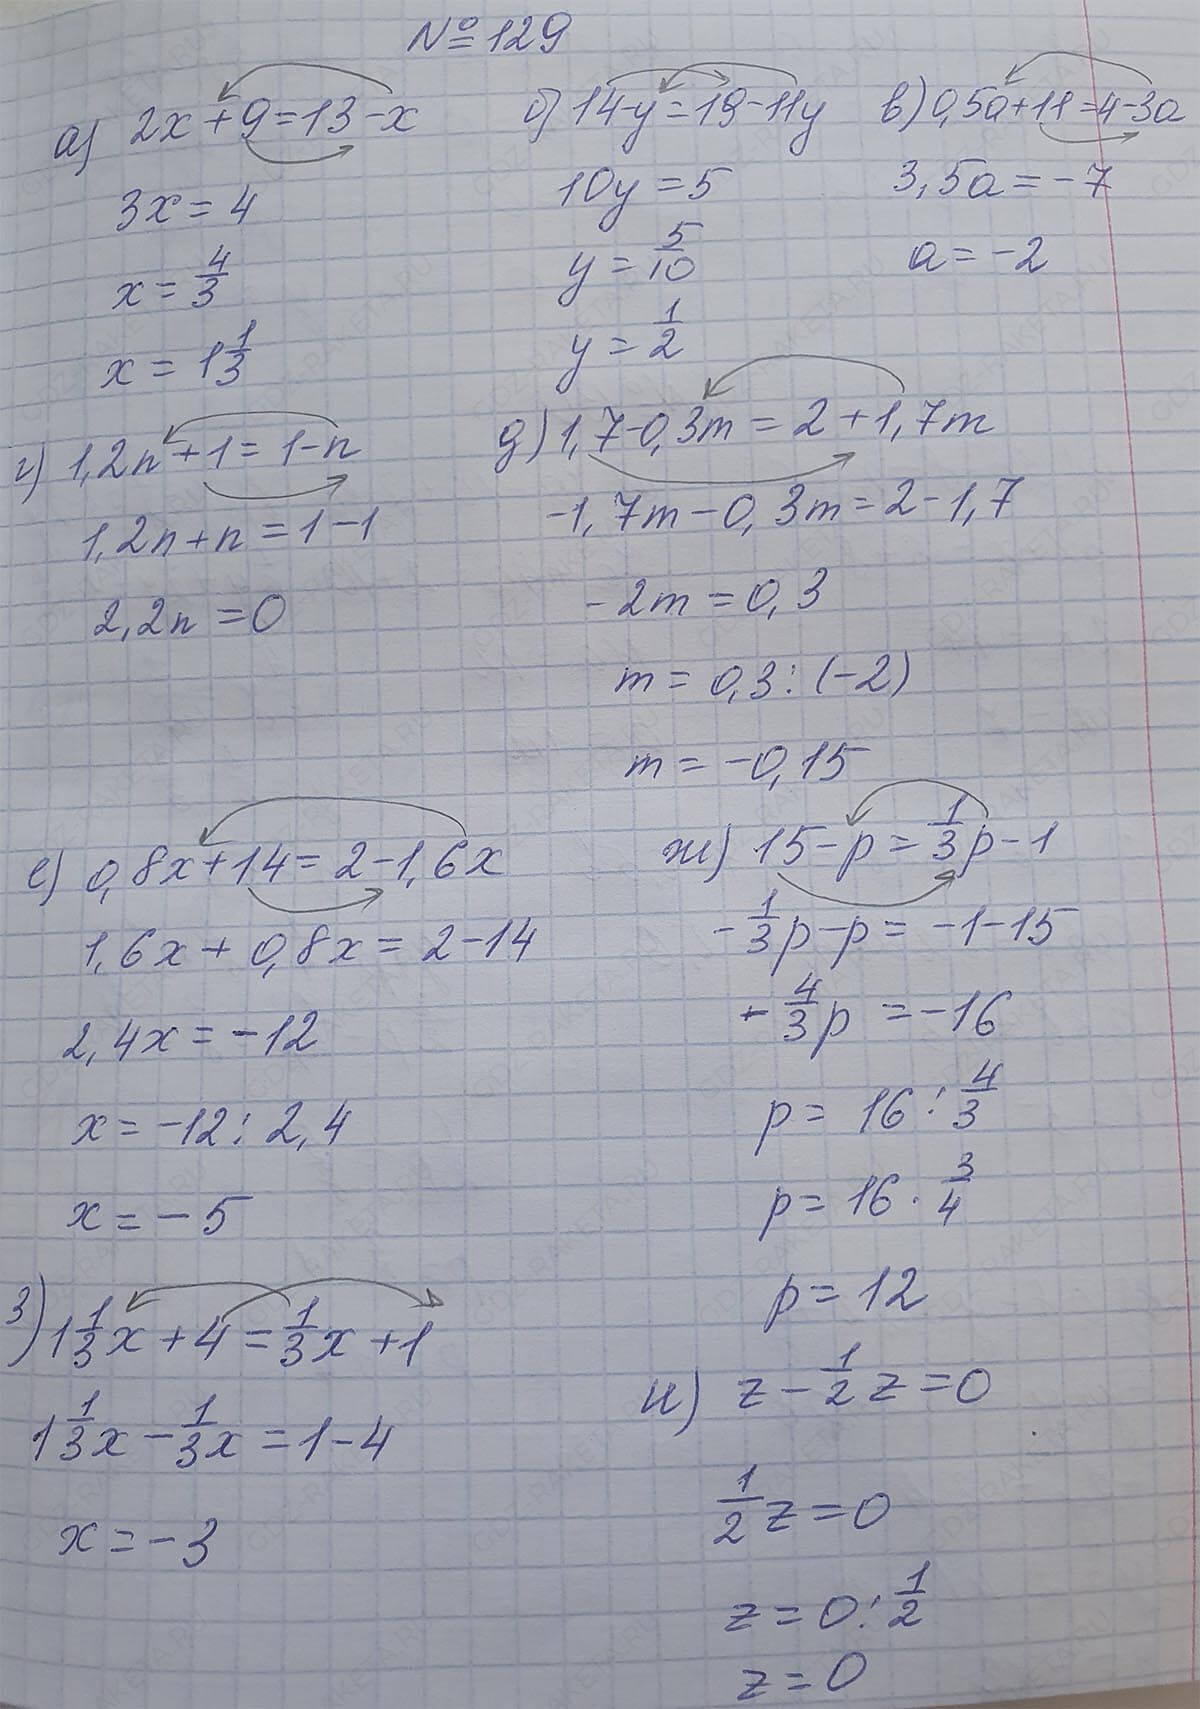 №129
а) 2x+9=13-x
3x=4
x=4/3
x=1 1/3
б) 14-y=19-11y
10y=5
y=5/10
y=1/2
в) 0,5a+11=4-3a
3,5a=-7
a=-2
г) 1,2n+1=1-n
1,2n+n=1-1
2,2n=0
д) 1,7-0,3m=2+1,7m
-1,7m-0,3m=2-1,7
-2m=0,3
m=0,3:(-2)
m=-0,15
е) 0,8x+14=2-1,6x
1,6x+0,8x=2-14
2,4x=-12
x=-12:2,4
x=-5
ж) 15-p=1/3p-1
-1/3p-p=-1-15
-4/3p=-16
p=16:4/3
p=16·3/4
p=12
з) 1 1/3x+4=1/3x+1
1 1/3x-1/3x=1-4
x=-3
и) z-1/2z=0
1/2z=0
z=0:1/2
z=0
GDZ-RAKETA.RU